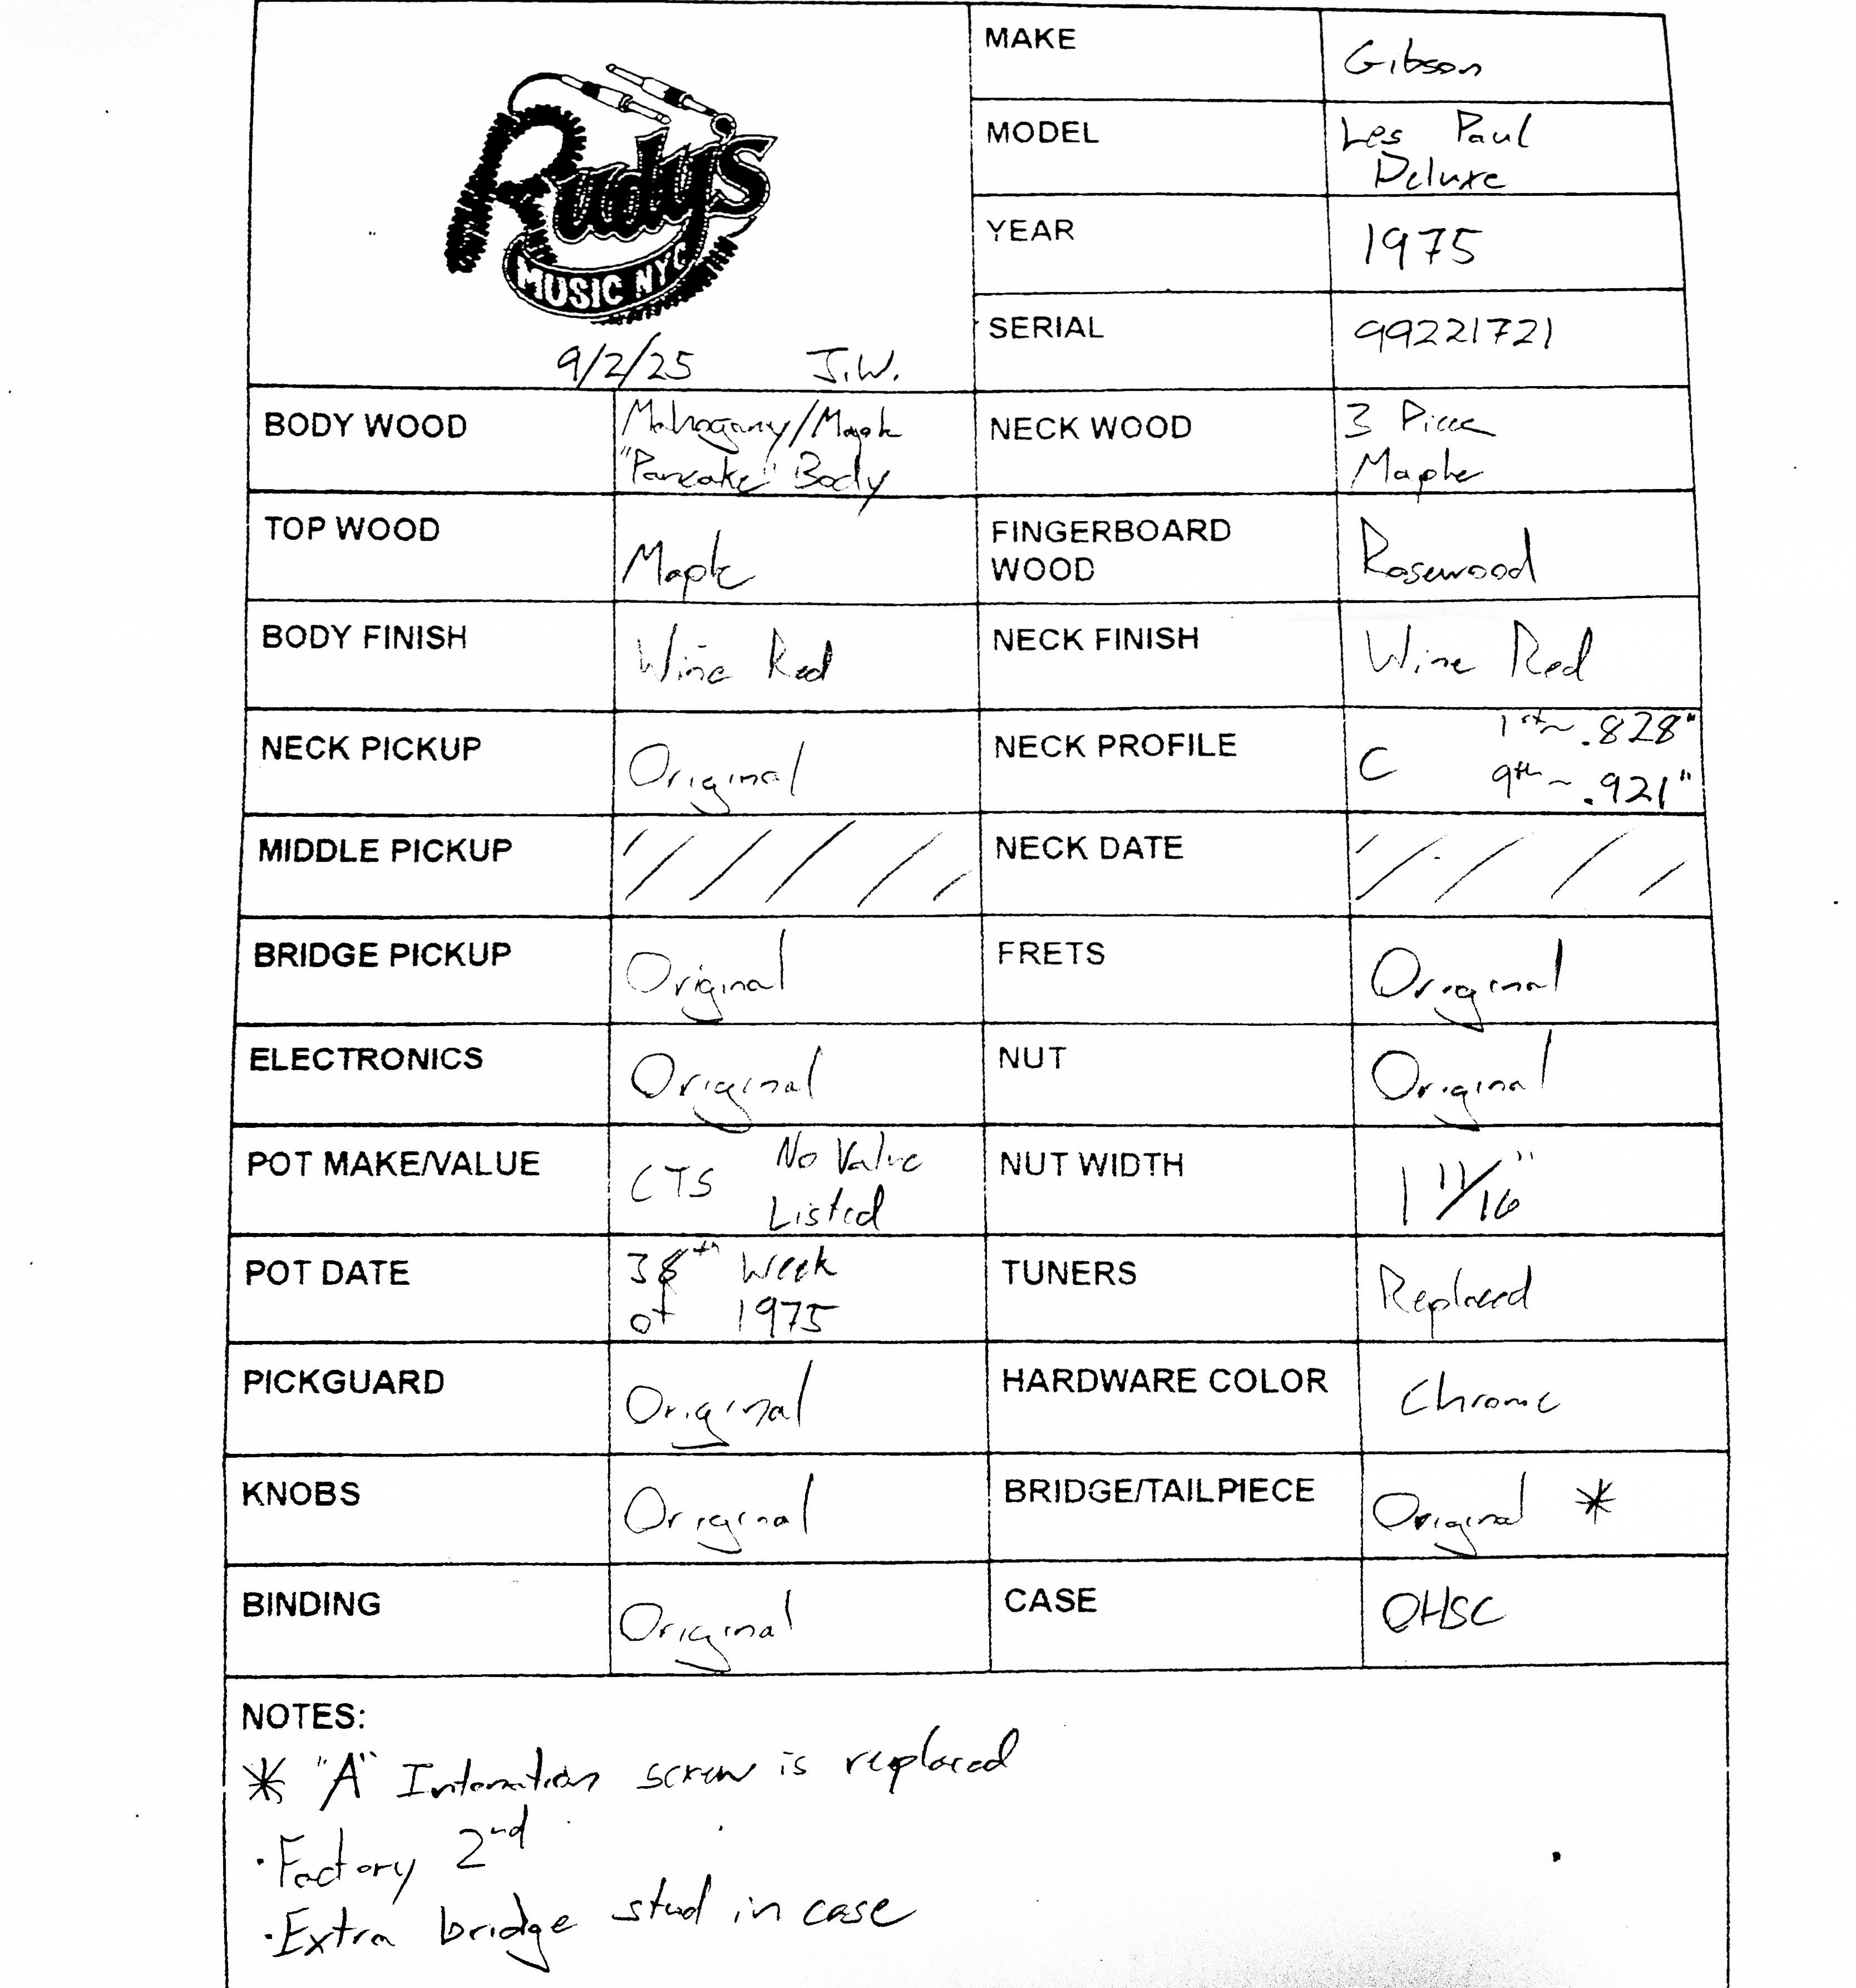 Rudy's
MUSIC NYC
9/2/25 J.W.
MAKE Gibson
MODEL Les Paul
Deluxe
YEAR 1975
SERIAL 99221721
BODY WOOD Mahogany/Maple
"Pancake" Body
NECK WOOD 3 Piece
Maple
TOP WOOD Maple
FINGERBOARD
WOOD Rosewood
BODY FINISH Wine Red
NECK FINISH Wine Red
NECK PICKUP Original
NECK PROFILE C 1st ~ .828"
9th ~ .921"
MIDDLE PICKUP
NECK DATE
BRIDGE PICKUP Original
FRETS Original
ELECTRONICS Original
NUT Original
POT MAKE/VALUE CTS No Value
Listed
NUT WIDTH 1 11/16"
POT DATE 38th Week
of 1975
TUNERS Replaced
PICKGUARD Original
HARDWARE COLOR Chrome
KNOBS Original
BRIDGE/TAILPIECE Original *
BINDING Original
CASE OHSC
NOTES:
* "A" Intonation screw is replaced
· Factory 2nd
· Extra bridge stud in case